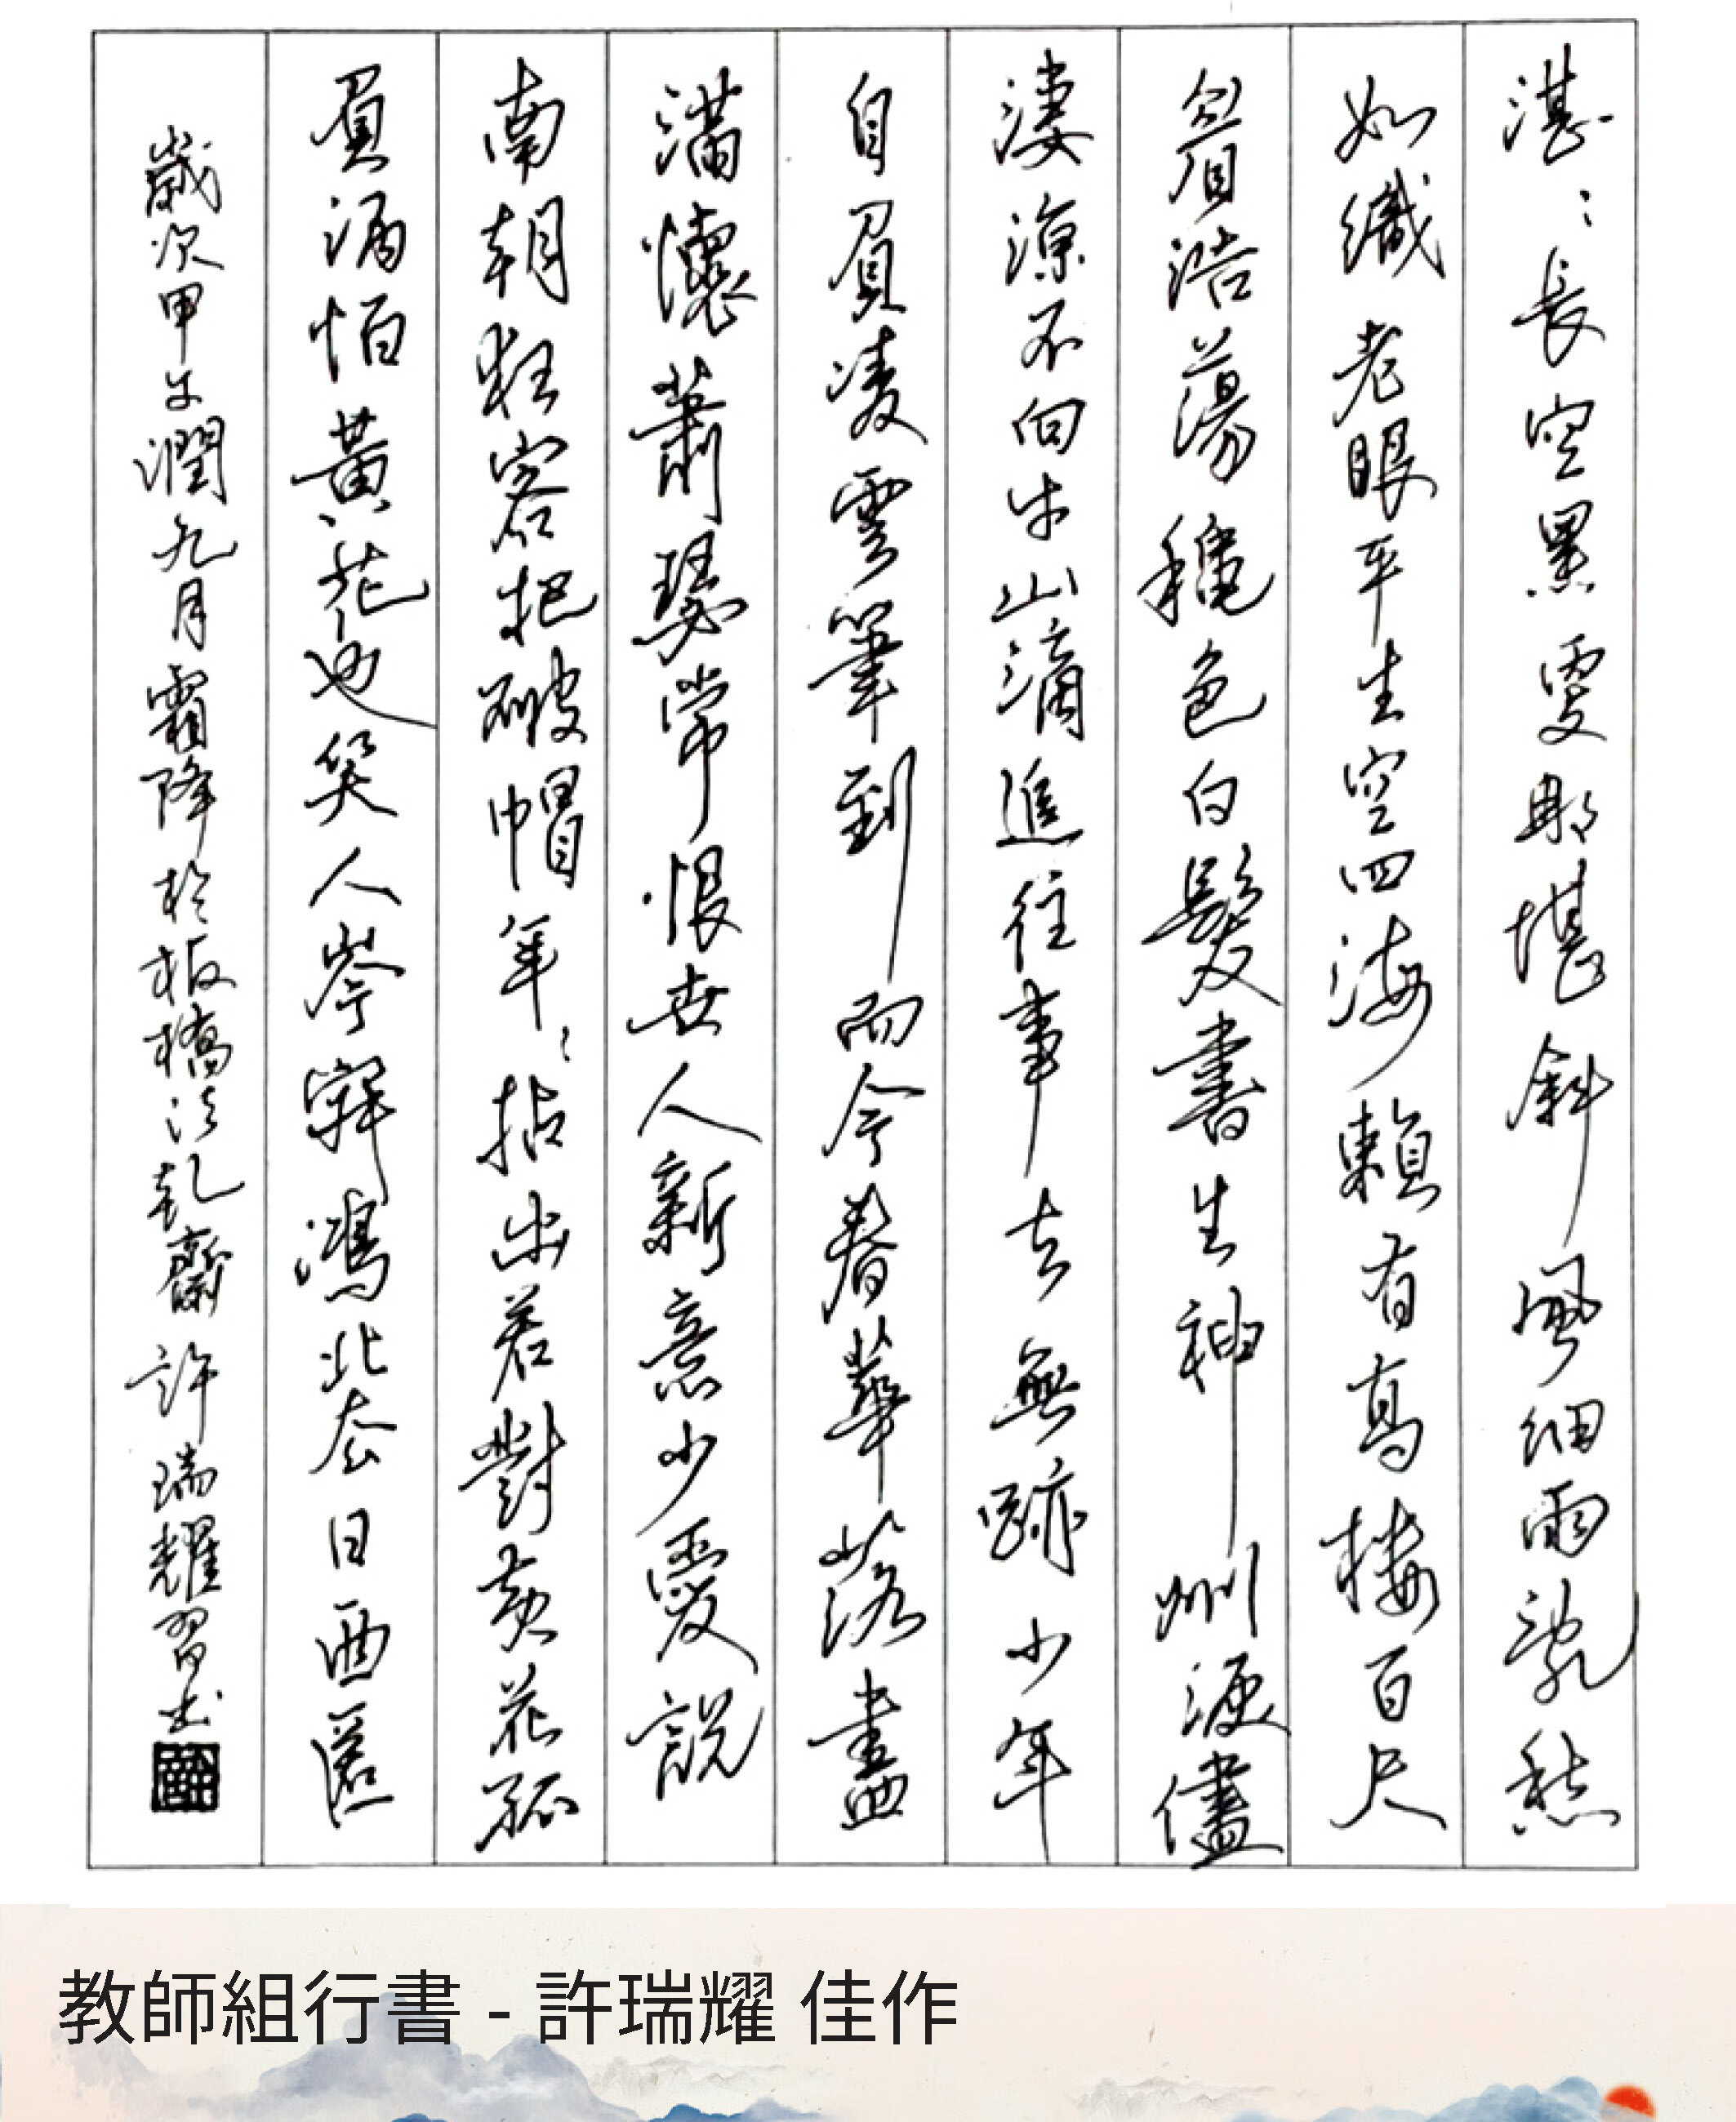 湛：長空黑更那堪斜風細雨亂愁
如織老眼平生空四海賴有高樓百尺
看浩蕩穐色白髮書生神州淚儘
淒涼不向牛山滴追往事去無跡少年
自負凌雲筆到而今春華落盡
滿懷蕭瑟常恨世人新意少愛說
南朝狂客把破帽年：拈出若對黃花孤
負酒怕黃花也笑人岑寂鴻北去日西匿
歲次甲午潤九月霜降於板橋法乾齋許瑞耀習書
教師組行書 - 許瑞耀 佳作